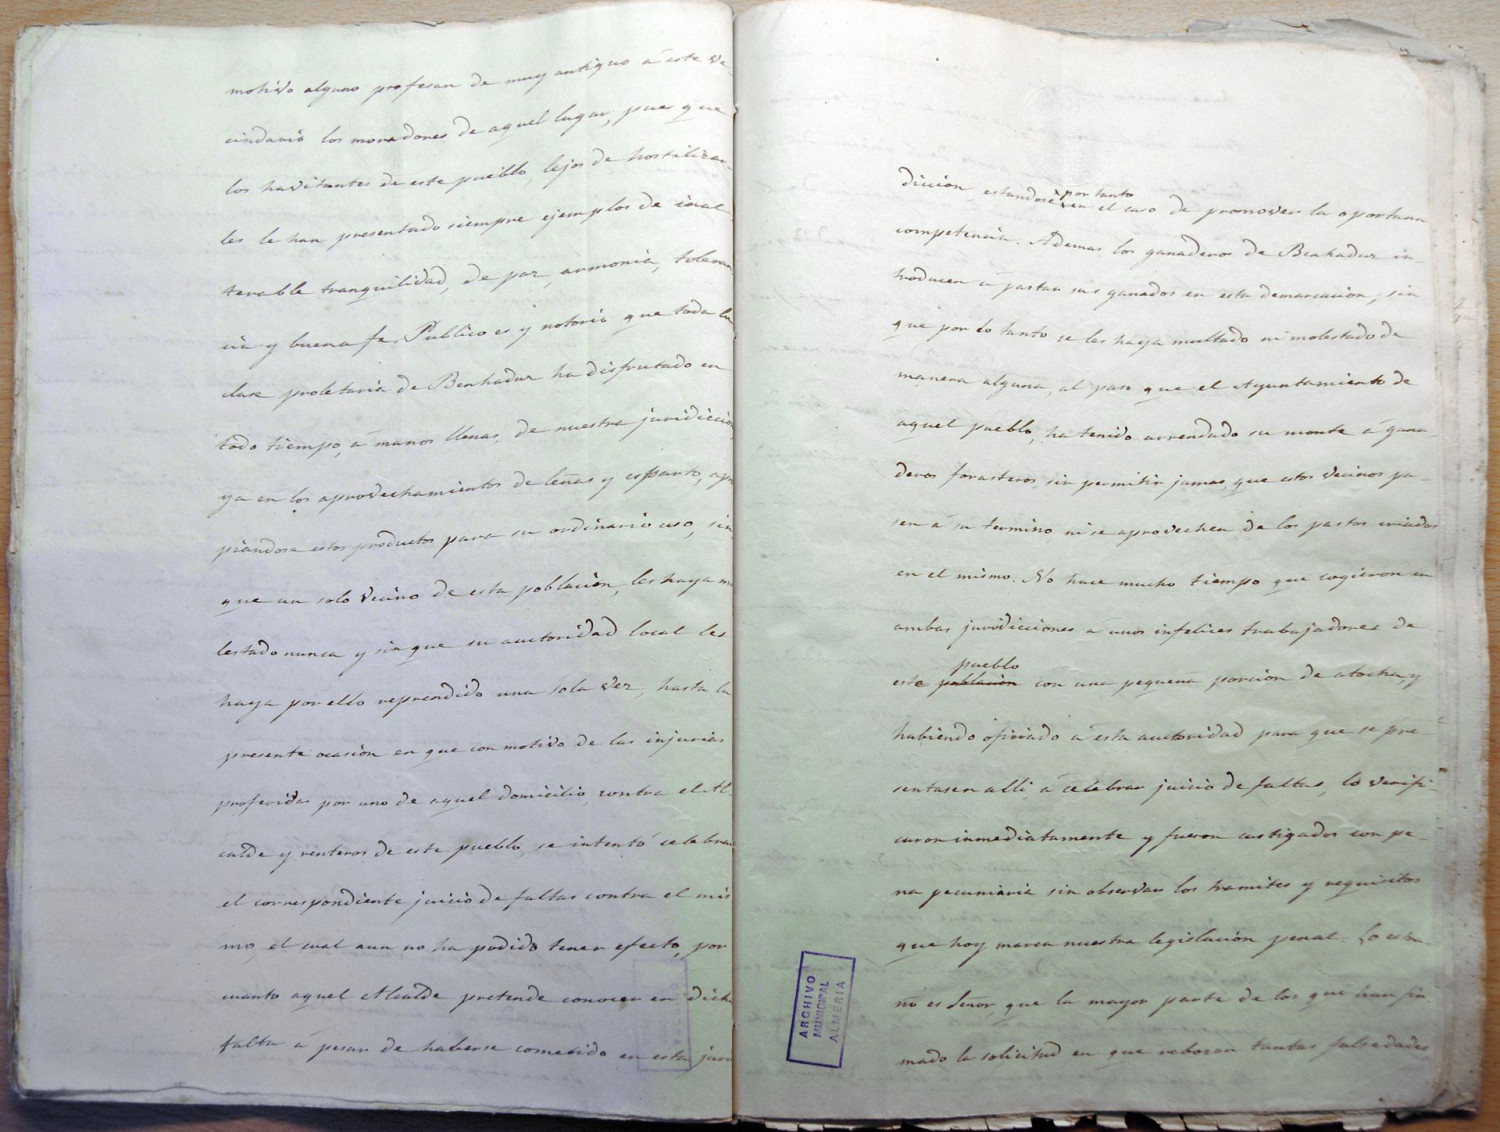 motivo alguno profesan de muy antiguo á este ve
cindario los moradores de aquel lugar, pues que
los havitantes de este pueblo, lejos de hostilizar
les le han presentado siempre ejemplos de inal-
terable tranquilidad, de paz, armonia, toleran
cia y buena fe. Publico es y notorio que toda la
clase proletaria de Benhadux ha disfrutado en
todo tiempo, á manos llenas, de nuestra juridiccion,
ya en los aprovechamientos de leñas y esparto, apro
piandose estos productos para su ordinario uso, sin
que un solo vecino de esta poblacion, les haya mo
lestado nunca y sin que su auctoridad local les
haya por ello reprendido una sola vez, hasta la
presente ocasion en que con motivo de las injurias
proferidas por uno de aquel domicilio, contra el Al-
calde y renteros de este pueblo, se intentó celebrar
el correspondiente juicio de faltas contra el mis
mo, el cual aun no ha podido tener efecto, por
cuanto aquel Alcalde pretende conocer en dicha
falta á pesar de haberse cometido en esta juri
diccion, estandose por tanto en el caso de promover la oportuna
competencia. Ademas los ganaderos de Benhadux in-
troducen á pastar sus ganados en esta demarcacion, sin
que por lo tanto se les haya multado ni molestado de
manera alguna, al paso que el Ayuntamiento de
aquel pueblo, ha tenido arrendado su monte á gana-
deros forasteros, sin permitir jamas, que estos vecinos pa-
sen á su termino ni se aprovechen de los pastos criados
en el mismo. No hace mucho tiempo que cogieron en
ambas jurodicciones á unos infelices trabajadores de
pueblo
este poblacion con una pequeña porcion de atocha, y
habiendo oficiado á esta auctoridad para que se pre-
sentasen alli á celebrar juicio de faltas, lo verifi-
caron inmediatamente y fueron castigados con pe-
na pecuniaria sin observar los tramites y requisitos
que hoy marca nuestra legislacion penal. Lo estra-
ño es Señor, que la mayor parte de los que han fir
mado la solicitud en que rebozan tantas falsedades
ARCHIVO
MUNICIPAL
ALMERIA